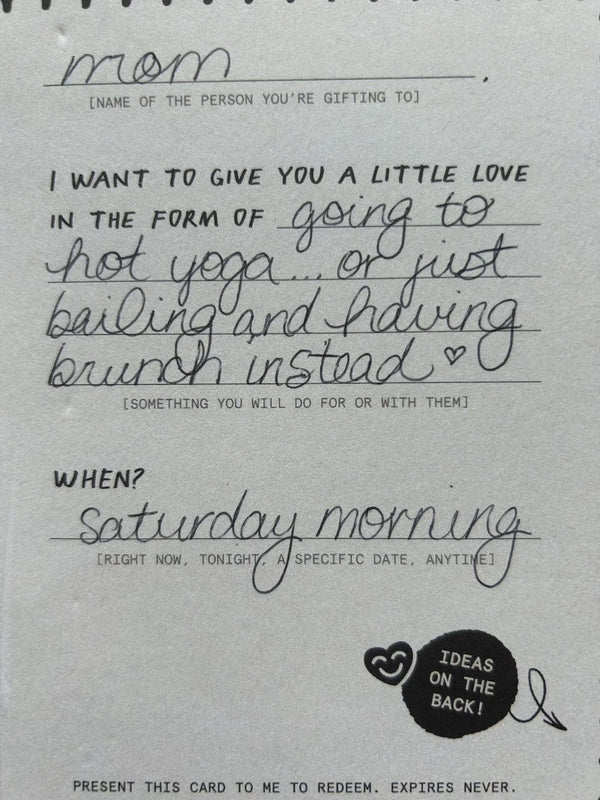 mom.
[NAME OF THE PERSON YOU'RE GIFTING TO]
I WANT TO GIVE YOU A LITTLE LOVE
IN THE FORM OF going to
hot yoga... or just
bailing and having
brunch instead ♡
[SOMETHING YOU WILL DO FOR OR WITH THEM]
WHEN?
saturday morning
[RIGHT NOW, TONIGHT, A SPECIFIC DATE, ANYTIME]
IDEAS
ON THE
BACK!
PRESENT THIS CARD TO ME TO REDEEM. EXPIRES NEVER.